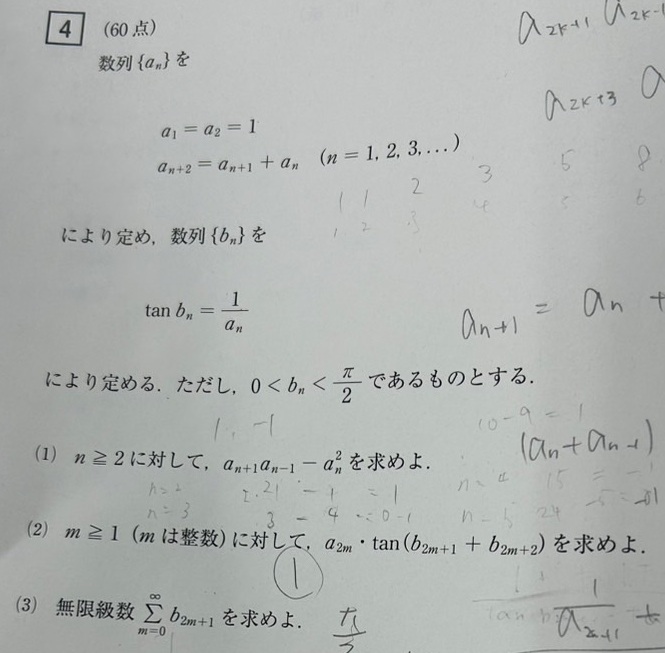 4 (60点)
a_{2k+1} a_{2k-1}
数列{a_n}を
a_{2k+3} a
a_1 = a_2 = 1
a_{n+2} = a_{n+1} + a_n (n = 1, 2, 3, …)
1 1 2 3 5 8
1 2 3 4 5 6
により定め，数列{b_n}を
tan b_n = 1/a_n
a_{n+1} = a_n +
により定める．ただし，0 < b_n < π/2 であるものとする．
1, -1
10-9 = 1
(a_n + a_{n-1})
(1) n ≧ 2 に対して，a_{n+1}a_{n-1} − a_n^2 を求めよ．
n=2
n=3
(2) m ≧ 1 (m は整数) に対して，a_{2m}・tan(b_{2m+1} + b_{2m+2}) を求めよ．
1
(3) 無限級数 ∑_{m=0}^{∞} b_{2m+1} を求めよ．